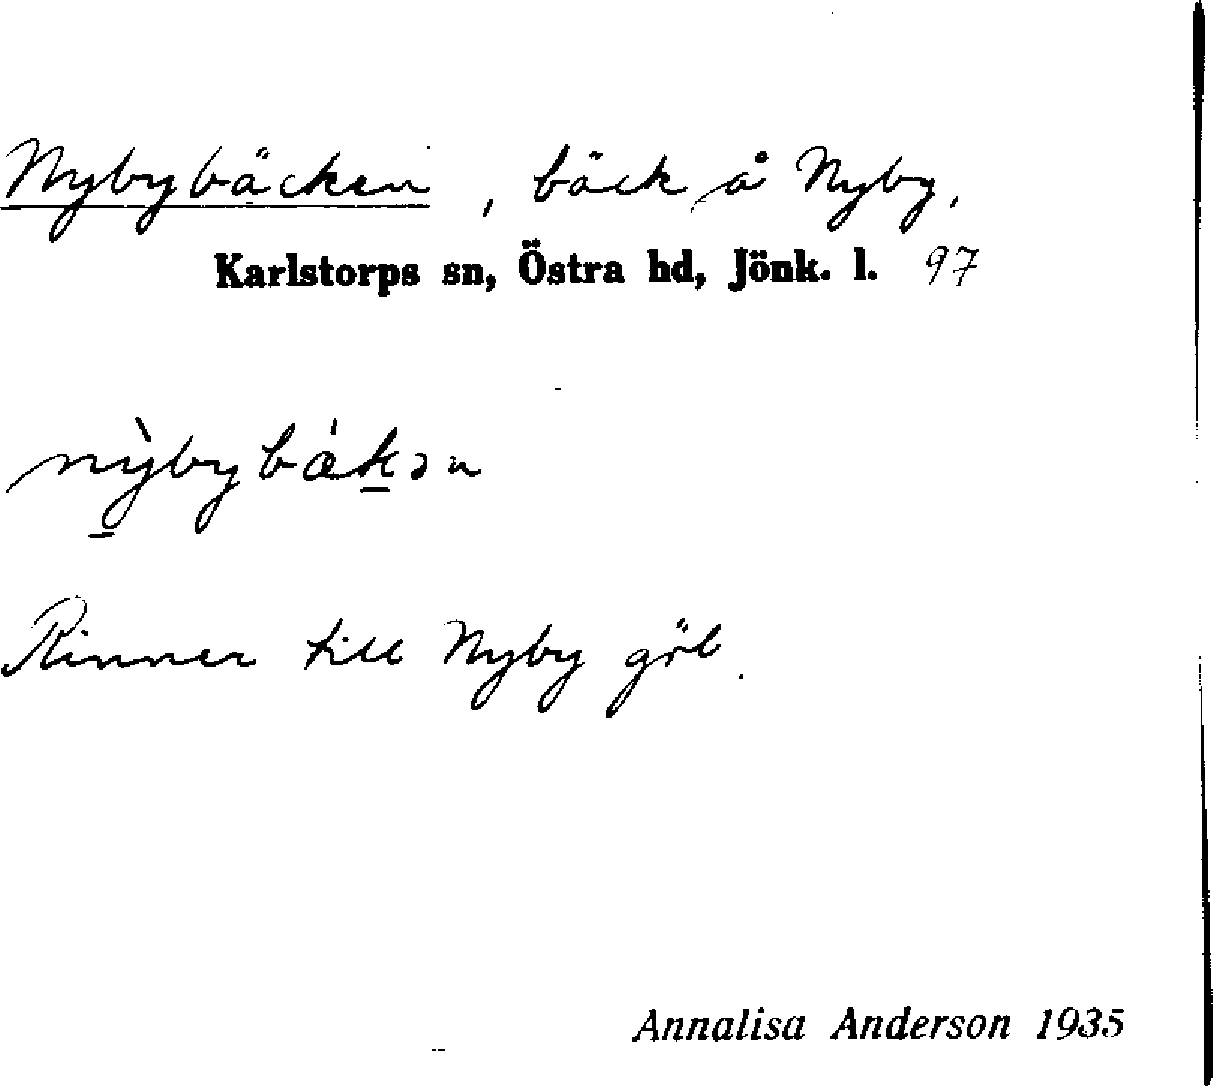 Nybybäcken, bäck å Nyby,
Karlstorps sn, Östra hd, Jönk. l. 97
nỳbybákən
Rinner till Nyby göl.
Annalisa Anderson 1935